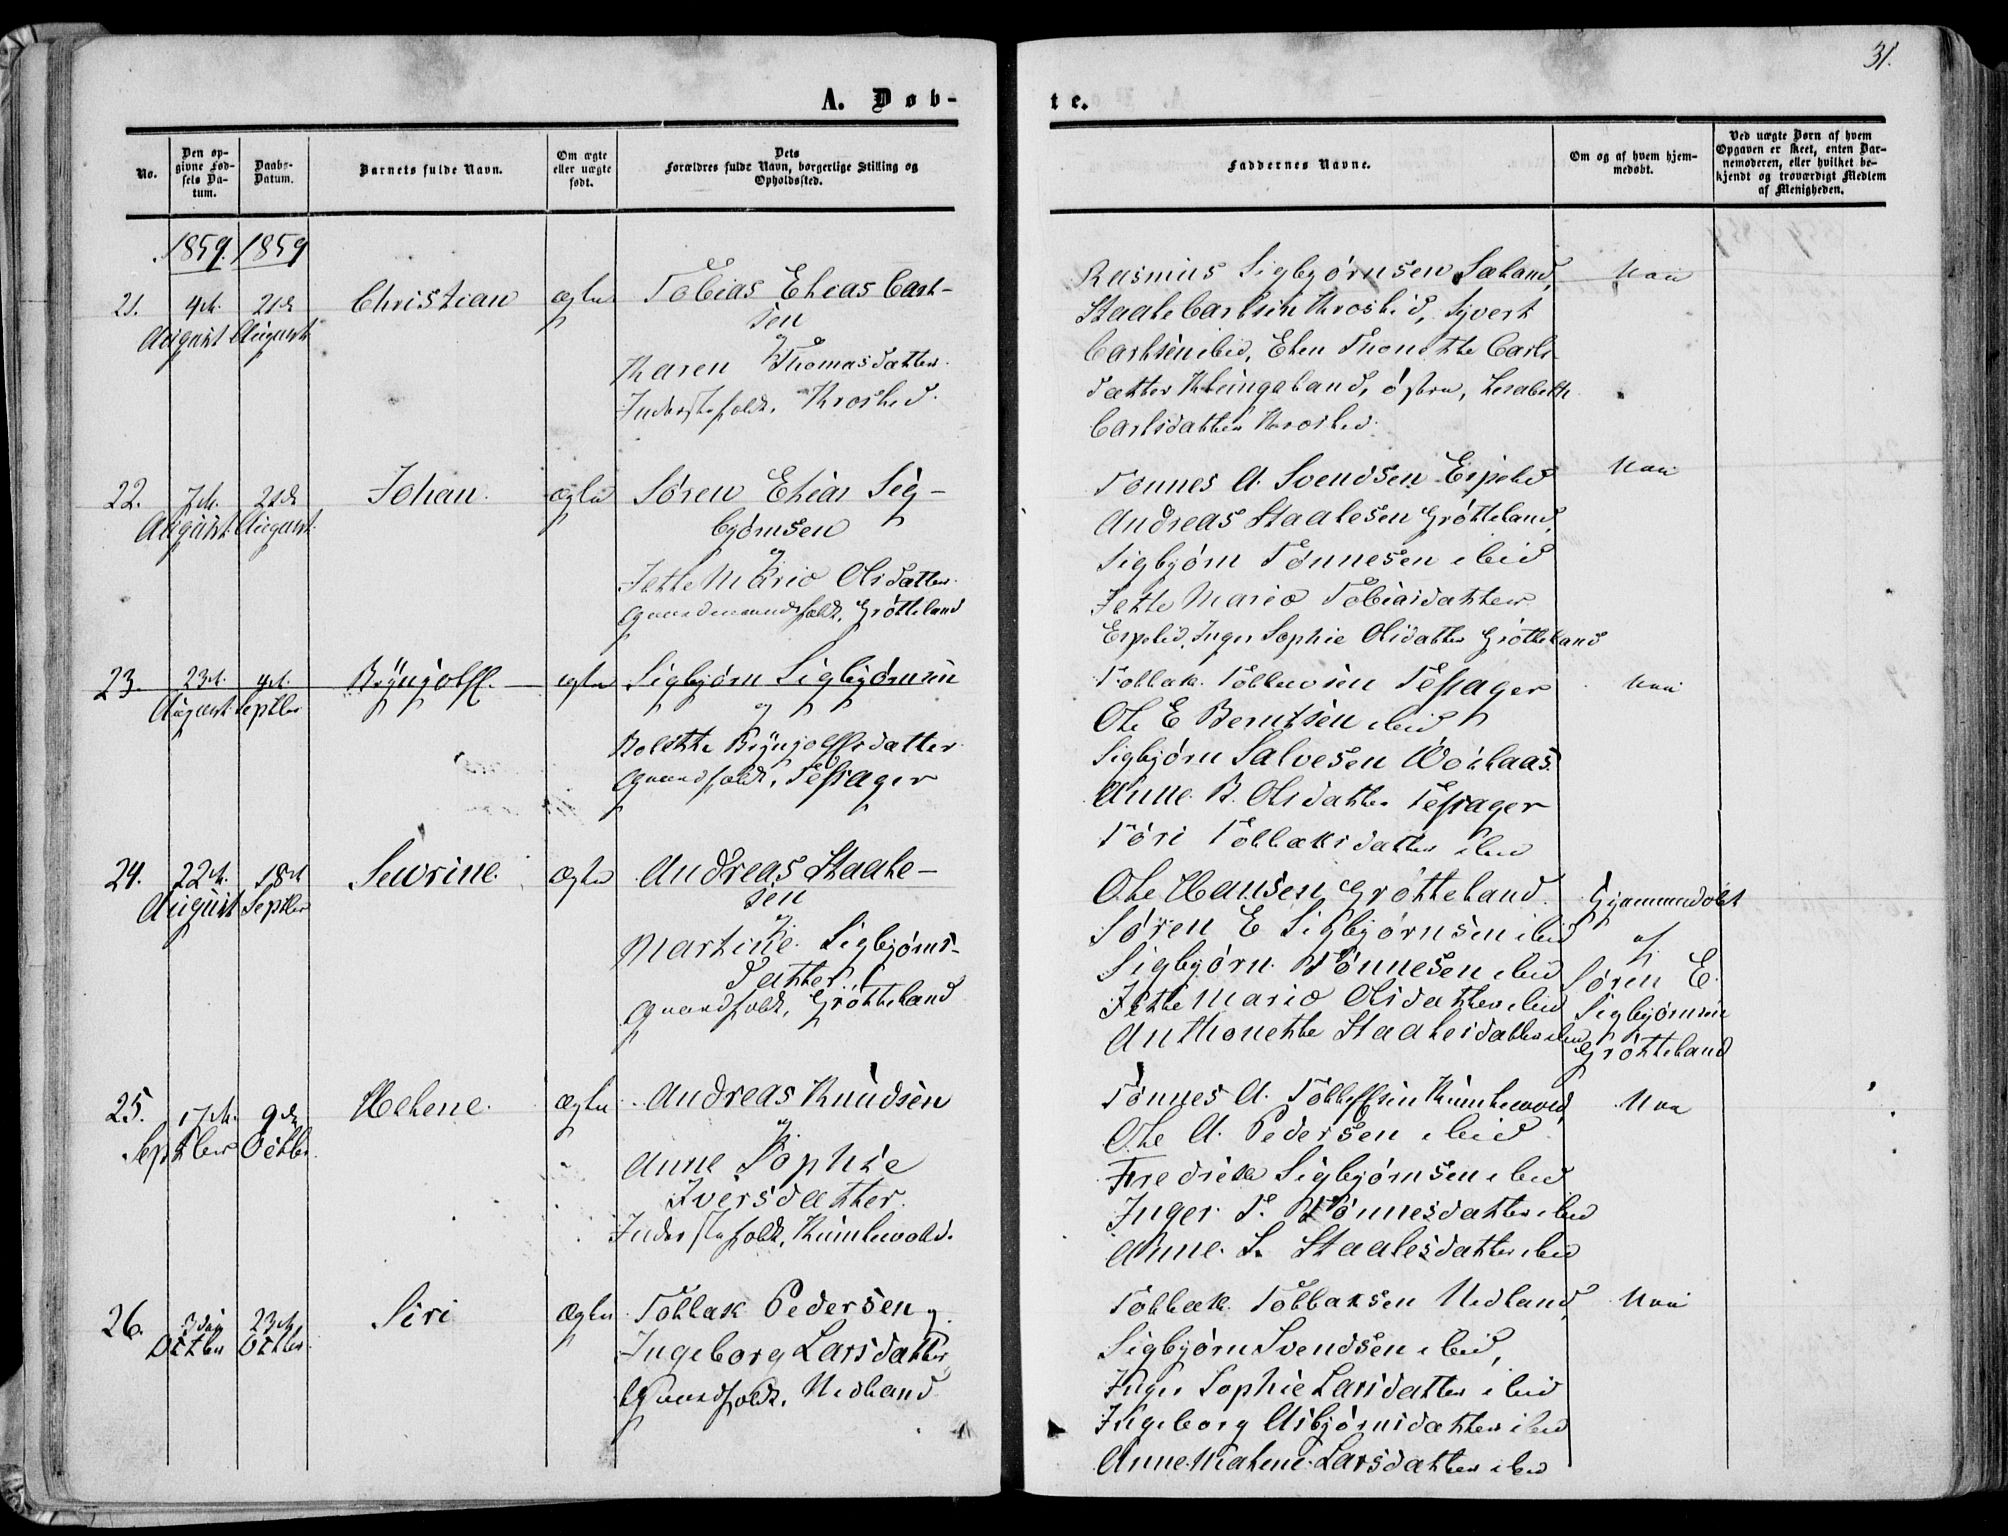 31.
A. Døb-
te.
No.
Den op-
givne Fød-
sels Da-
tum.
Daabs-
Datum.
Barnets fulde Navn.
Om ægte
eller uægte
født.
Dets
Forældres fulde Navn, borgerlige Stilling og
Opholdssted.
Faddernes Navne.
Om og af hvem hjem-
medøbt.
Ved uægte Børn af hvem
Opgaven er skeet, enten Bar-
nemoderen, eller hvilket be-
kjendt og troværdigt Medlem
af Menigheden.
1859. 1859
21.
4de
August
21de
August
Christian
ægte
Tobias Elias Carl-
sen
og
Karen Thomasdatter
Inderstefolk, Kroslid.
Rasmus Sigbjørnsen Sæland,
Staale Carlsen Kroslid, Syvert
Carlsen ibid, Elen Thonette Carls
datter Klungeland, østre, Lisabeth
Carlsdatter Kroslid.
Nei
22.
7de
August
21de
August
Johan.
ægte
Søren Elias Sig-
bjørnsen
og
Jette Marie Olsdatter
Gaardmandsfolk, Grøtteland
Tønnes A. Svendsen Espelid
Andreas Staalesen Grøtteland,
Sigbjørn Tønnesen ibid
Jette Marie Tobiasdatter
Espelid, Inger Sophie Olsdatter Grøtteland
Nei
23.
23de
August
4de
Septbr
Brynjolff.
ægte
Sigbjørn Sigbjørnsen
og
Bolette Brynjolffsdatter
Gaardfolk, Tessager
Tollak Tollevsen Tessager
Ole E Berntsen ibid
Sigbjørn Salvesen
Anne B. Olsdatter Tessager
Tøri Tollaksdatter ibid
Nei
24.
22de
August
18de
Septbr
Sevrine.
ægte
Andreas Staale-
sen
og
Martine Sigbjørns-
datter
Gaardfolk, Grøtteland
Ole Hansen Grøtteland.
Søren E Sigbjørnsen ibid
Sigbjørn Tønnesen ibid
Jette Marie Olsdatter ibid
Anthonette Staalesdatter ibid
Hjemmedøbt
af
Søren E.
Sigbjørnsen
Grøtteland
25.
17de
Septber
9de
Octbr.
Helene.
ægte
Andreas Knudsen
og
Anne Sophie
Iversdatter.
Inderstefolk, Kumlevold.
Tønnes A. Tolleffsen Kumlevold,
Ole A. Pedersen ibid
Fredrik Sigbjørnsen ibid
Inger T. Tønnesdatter ibid
Anne S. Staalesdatter ibid
Nei
26.
3die
Octber
23de
Octbr.
Siri
ægte
Tollak Pedersen og
Ingeborg Larsdatter,
Gaardfolk, Nedland
Tollak Tollaksen Nedland,
Sigbjørn Svendsen ibid,
Inger Sophie Larsdatter ibid
Ingeborg Asbjørnsdatter ibid
Anne Malene Larsdatter ibid
Nei